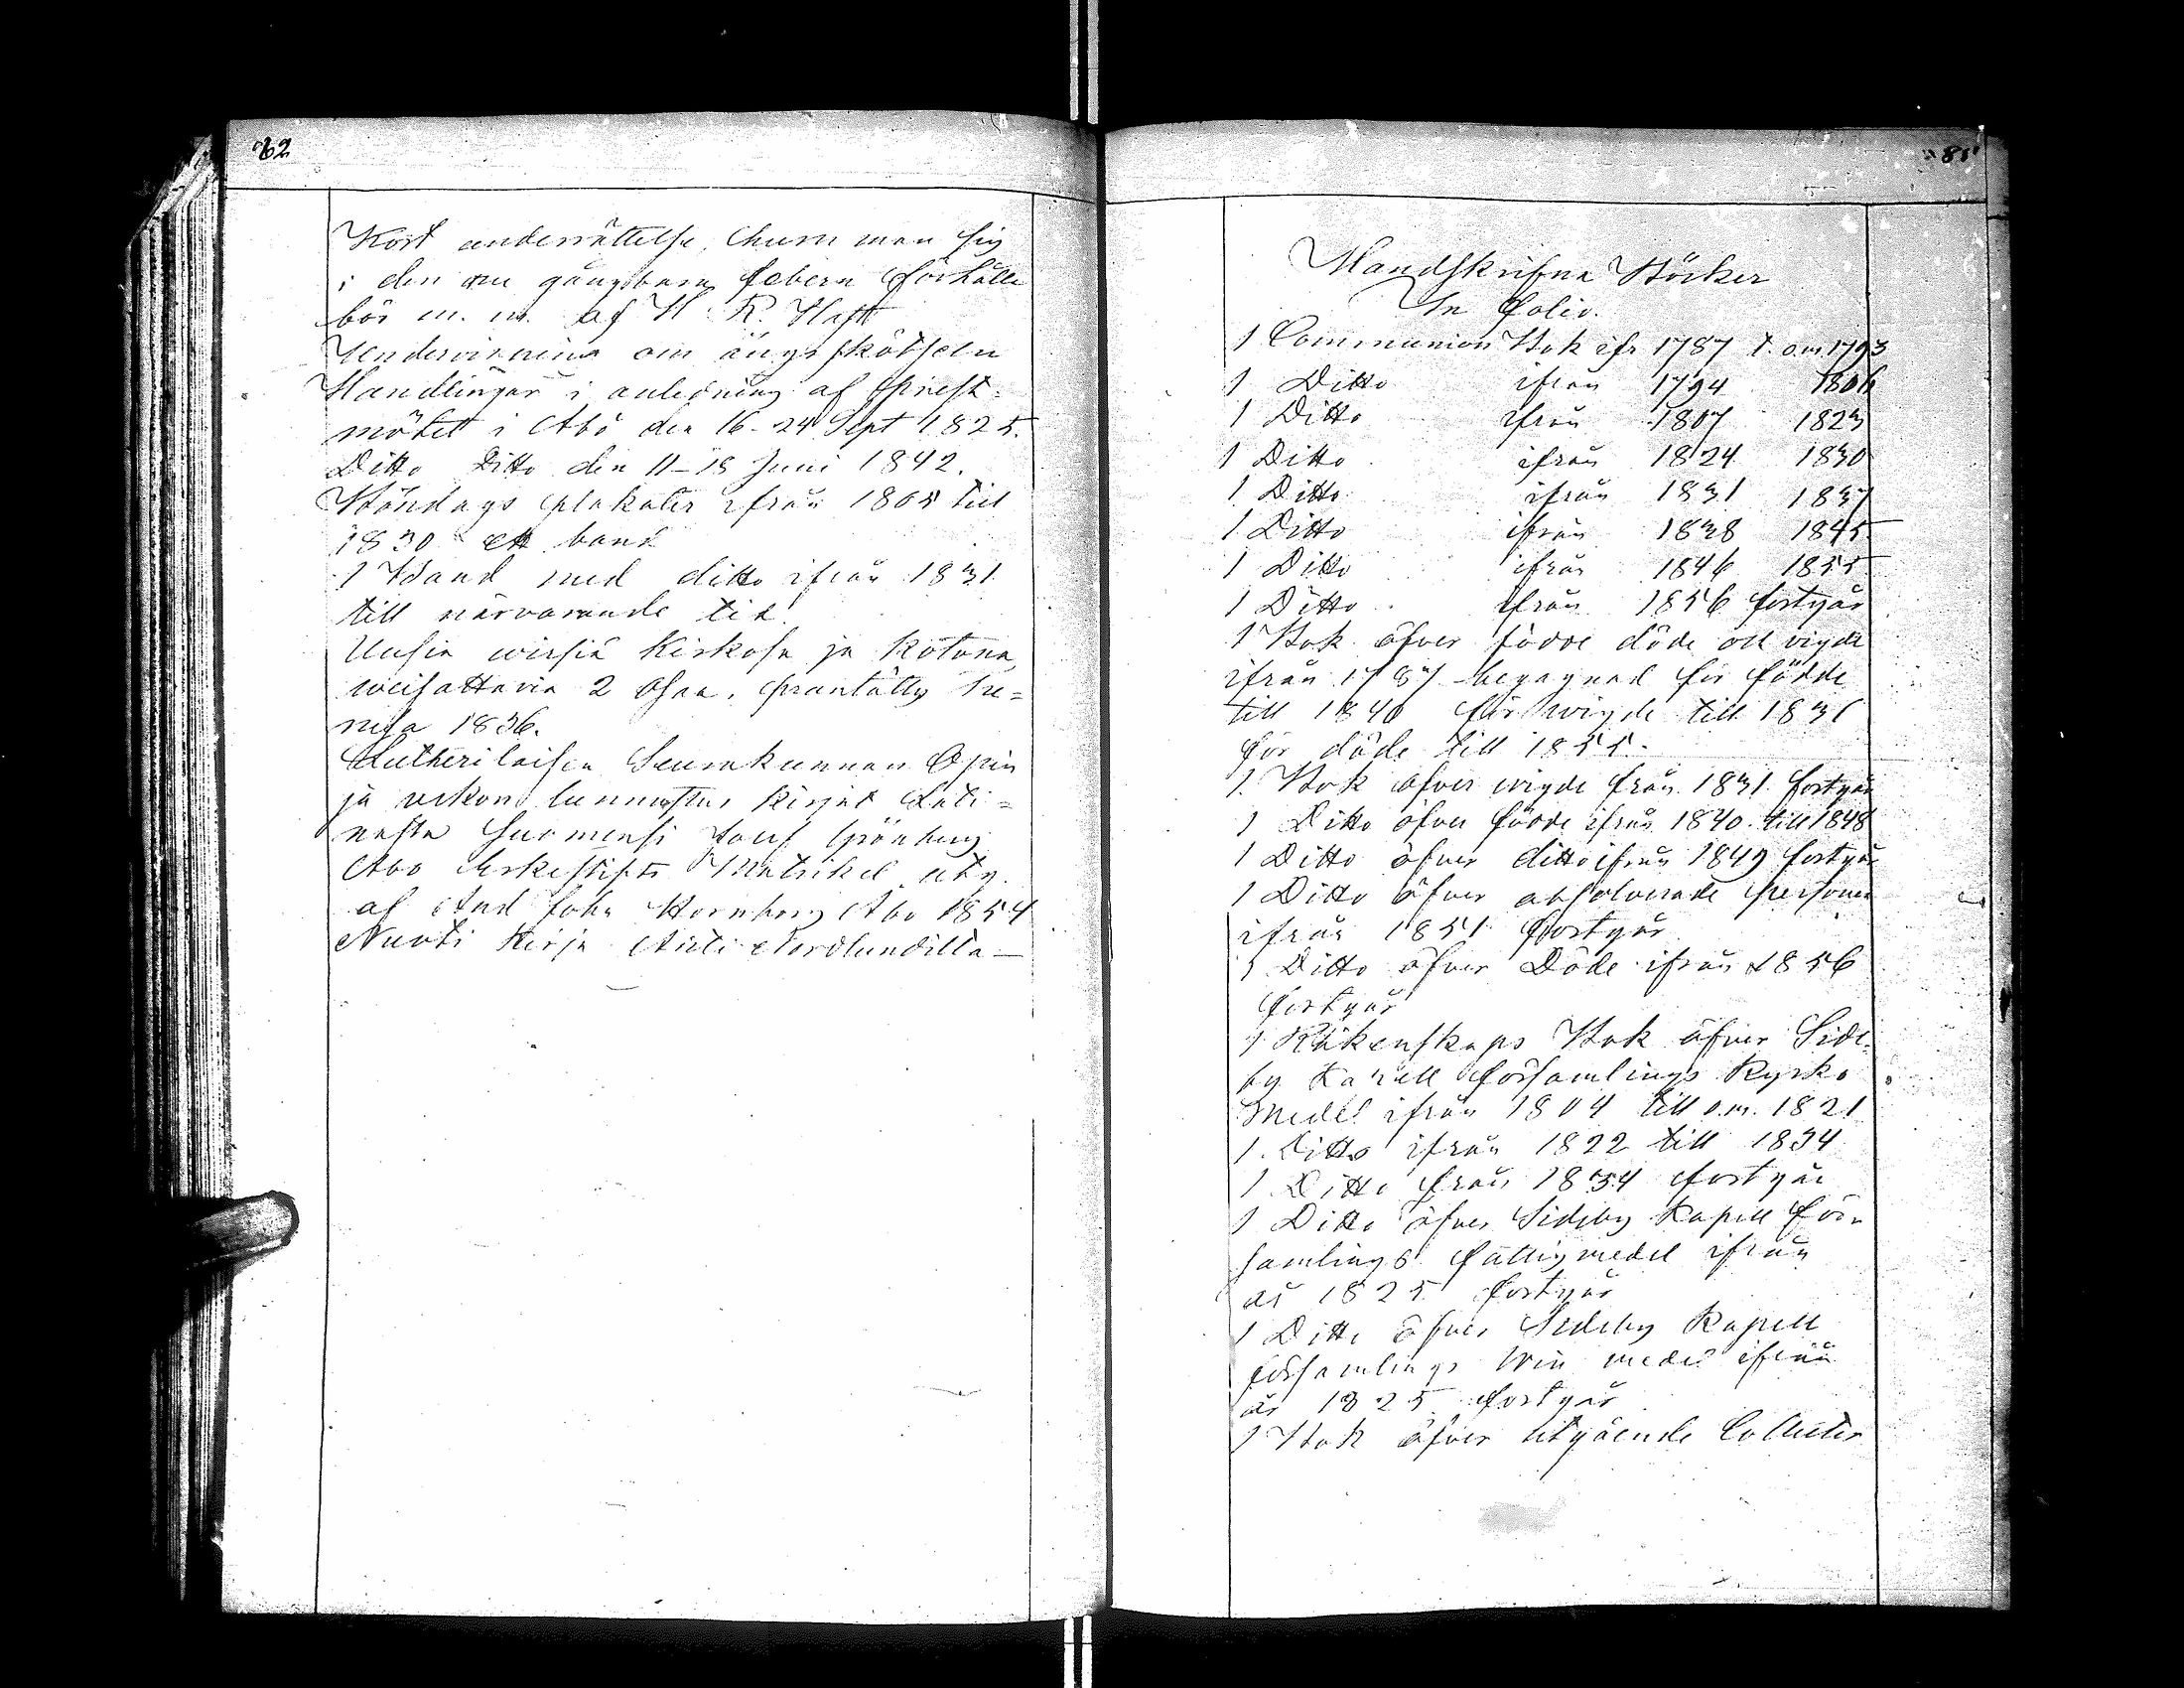 62
Kort underrättelse, huru man sig
i den nu gångbara febern förhålla
bör m. m. af H. R. Haft
Undervisning om ängsskötseln
Handlingar i anledning af Prest-
mötet i Åbo den 16-24 Sept 1825.
Ditto Ditto den 11-18 Juni 1842.
Böndags plakater ifrån 1805 till
1830 ett band
1 Band med ditto ifrån 1831
till närvarande tid.
Uusia wirsiä Kirkosa ja Kotona,
weisattavia 2 Osaa.
1836.
Lutherilaisen Seurakunnan Opin
ja uskon tunnustus kirjat Lati=
nasta Suomensi Josef Grönberg
Åbo Erkestifts Matrikel utg.
af And Joh Hornborg Åbo 1854
Nuoti Kirja Anti Nordlundilta —
81
Handskrifna Böcker
In Folio.
1 Communion Bok ifr 1787 t. o.m. 1793
1 Ditto ifrån 1794 1806
1 Ditto ifrån 1807 1823
1 Ditto ifrån 1824 1830
1 Ditto ifrån 1831 1837
1 Ditto ifrån 1838 1845
1 Ditto ifrån 1846 1855
1 Ditto ifrån 1856 fortgår
1 Bok öfver födde döde och vigde
ifrån 1787 begagnad för födde
till 1840 för wigde till 1831
för döde till 1855.
1. Bok öfver wigde från 1831 fortgår
1 Ditto öfver födde ifrån 1840 till 1848
1 Ditto öfver ditto ifrån 1849 fortgår
1 Ditto öfver absolverade personer
ifrån 1851 fortgår
1 Ditto öfver Döde ifrån 1856
fortgår
1 Räkenskaps Bok öfver Side-
by Kapell församlings Kyrko
Medel ifrån 1804 till o.m. 1821
1. Ditto ifrån 1822 till 1834
1 Ditto från 1834 fortgår
1 Ditto öfver Sideby Kapell för-
samlings fattigmedel ifrån
år 1825 fortgår
1 Ditto öfver Sideby Kapell
församlings Win medel ifrån
år 1825 fortgår
1 Bok öfver utgående Collecter